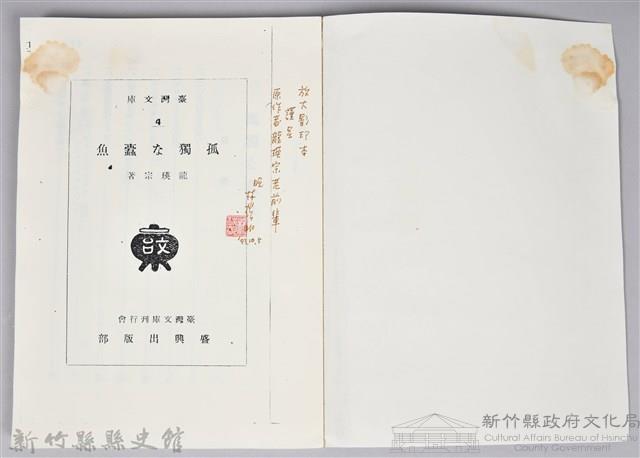 臺灣文庫
4
孤獨な蠹魚
龍瑛宗著
文台
臺灣文庫刊行會
盛興出版部
放大影印本
謹呈
原作者龍瑛宗老前輩
晚
新竹縣縣史館
新竹縣政府文化局
Cultural Affairs Bureau of Hsinchu
County Government